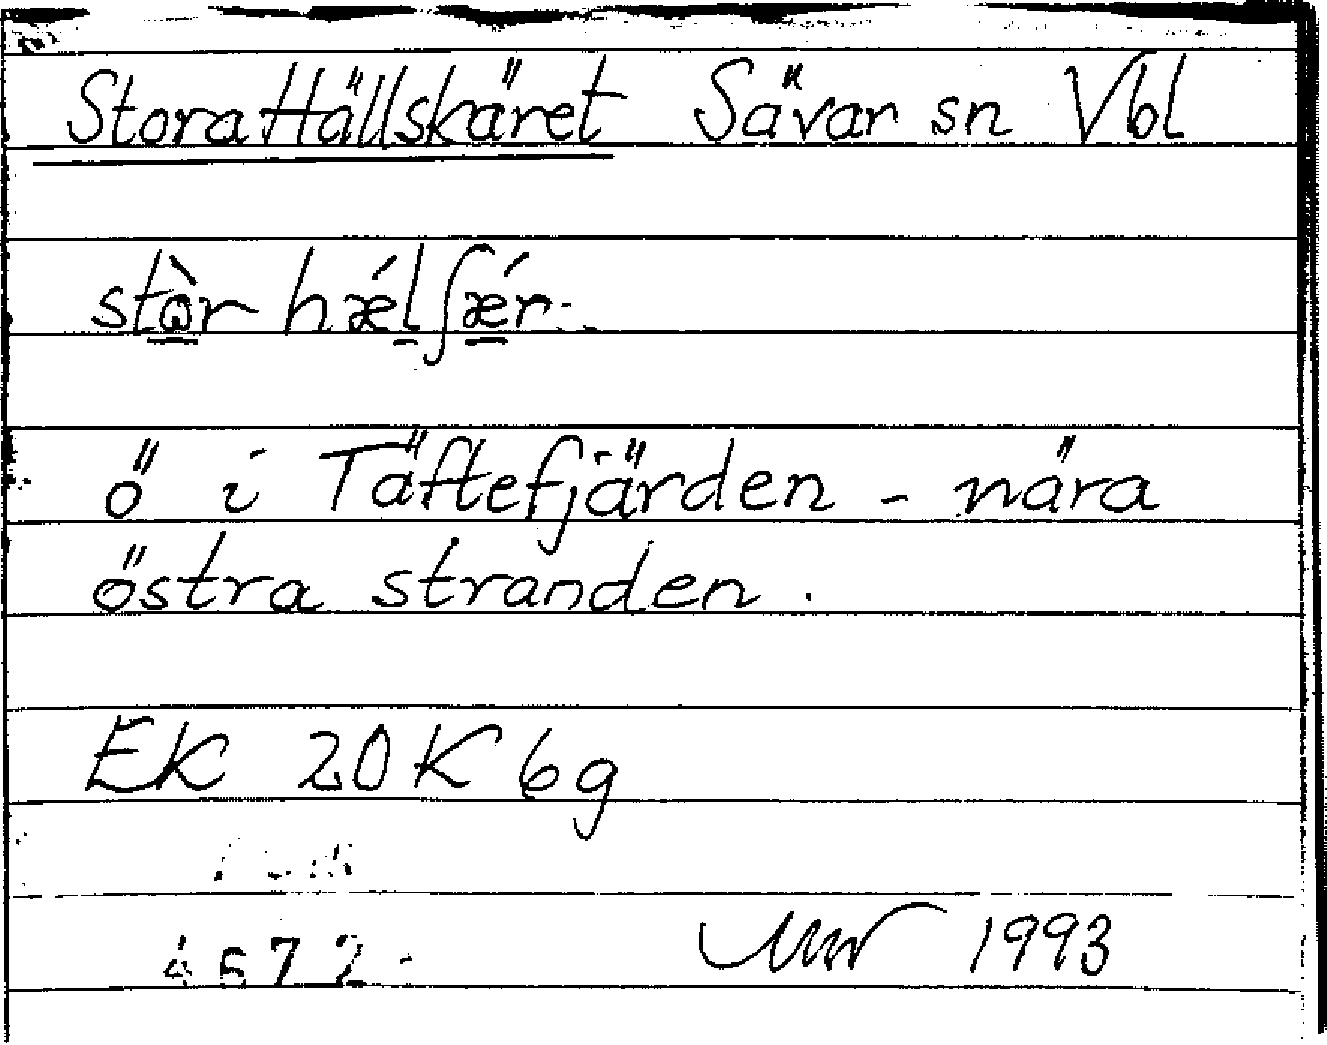 Stora Hällskäret Sävar sn Vbl
stò̱r hǽḻʃǽ̱r.
ö i Täftefjärden - nära
östra stranden.
EK 20 K 6g
4672 1993